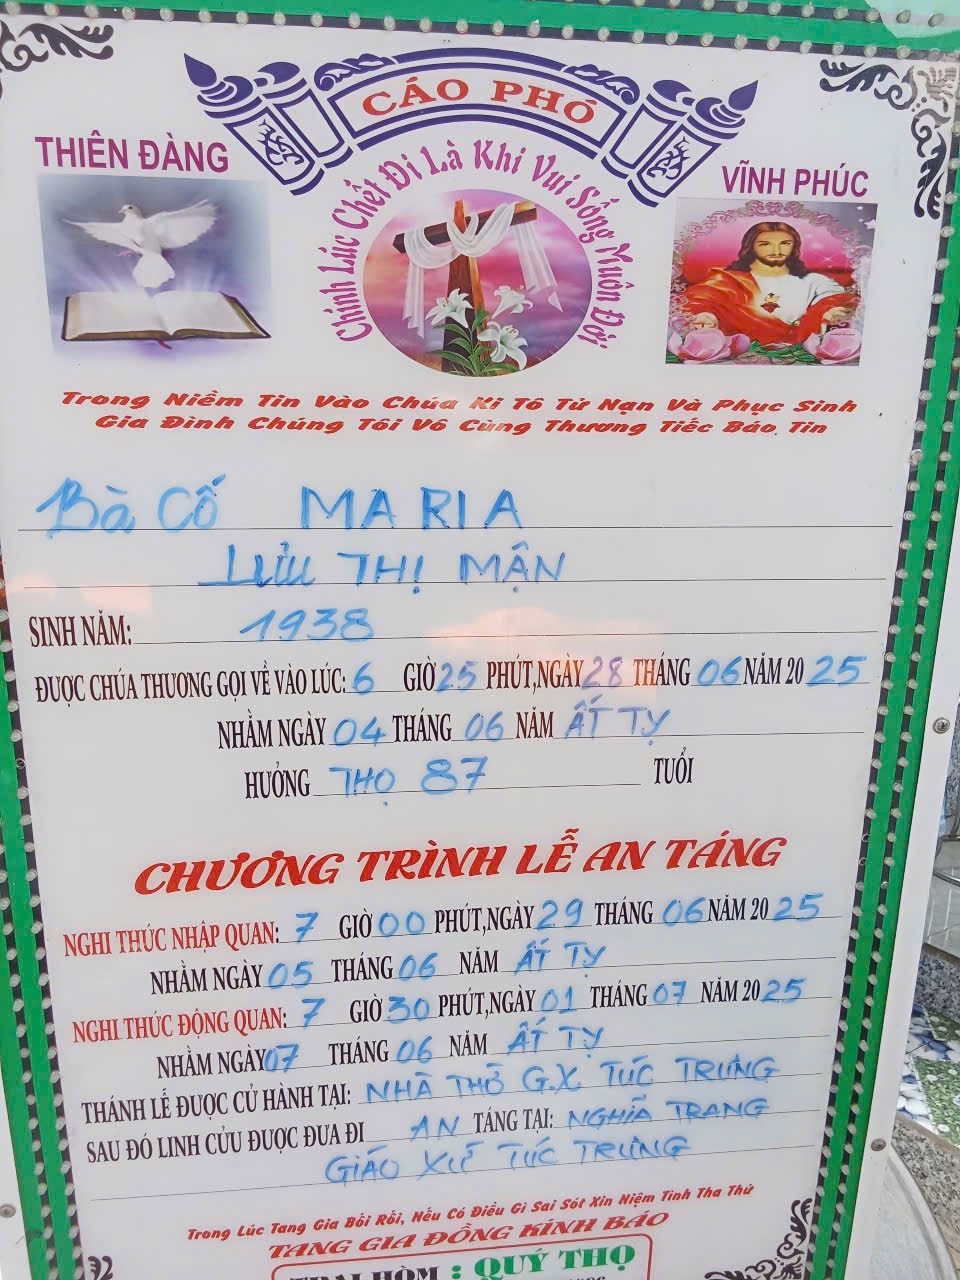 CÁO PHÓ
THIÊN ĐÀNG
Chính Lúc Chết Đi Là Khi Vui Sống Muôn Đời
VĨNH PHÚC
Trong Niềm Tin Vào Chúa Ki Tô Tử Nạn Và Phục Sinh
Gia Đình Chúng Tôi Vô Cùng Thương Tiếc Báo Tin
Bà Cố MARIA
LƯU THỊ MẬN
SINH NĂM: 1938
ĐƯỢC CHÚA THƯƠNG GỌI VỀ VÀO LÚC: 6 GIỜ 25 PHÚT, NGÀY 28 THÁNG 06 NĂM 2025
NHẰM NGÀY 04 THÁNG 06 NĂM ẤT TỴ
HƯỞNG THỌ 87 TUỔI
CHƯƠNG TRÌNH LỄ AN TÁNG
NGHI THỨC NHẬP QUAN: 7 GIỜ 00 PHÚT, NGÀY 29 THÁNG 06 NĂM 2025
NHẰM NGÀY 05 THÁNG 06 NĂM ẤT TỴ
NGHI THỨC ĐỘNG QUAN: 7 GIỜ 30 PHÚT, NGÀY 01 THÁNG 07 NĂM 2025
NHẰM NGÀY 07 THÁNG 06 NĂM ẤT TỴ
THÁNH LỄ ĐƯỢC CỬ HÀNH TẠI: NHÀ THỜ G.X TÚC TRƯNG
SAU ĐÓ LINH CỬU ĐƯỢC ĐƯA ĐI AN TÁNG TẠI: NGHĨA TRANG
GIÁO XỨ TÚC TRƯNG
Trong Lúc Tang Gia Bối Rối, Nếu Có Điều Gì Sai Sót Xin Niệm Tình Tha Thứ
TANG GIA ĐỒNG KÍNH BÁO
TRẠI HÒM : QUÝ THỌ